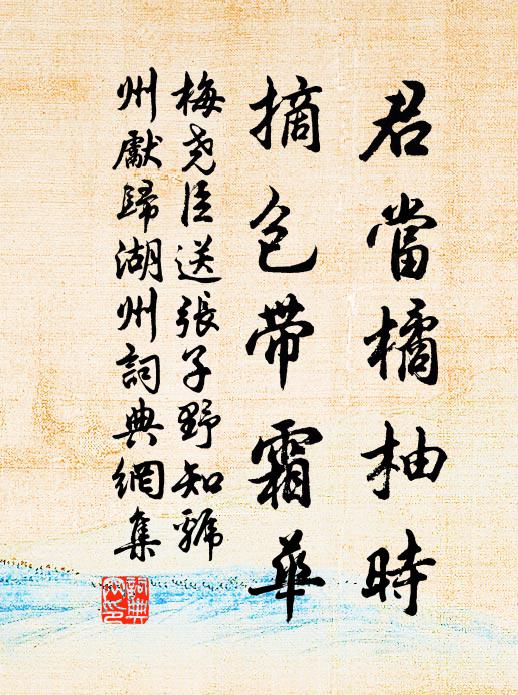 君當橘柚時
摘包帶霜華
梅堯臣送張子野知虢
州獻歸湖州詞典網集